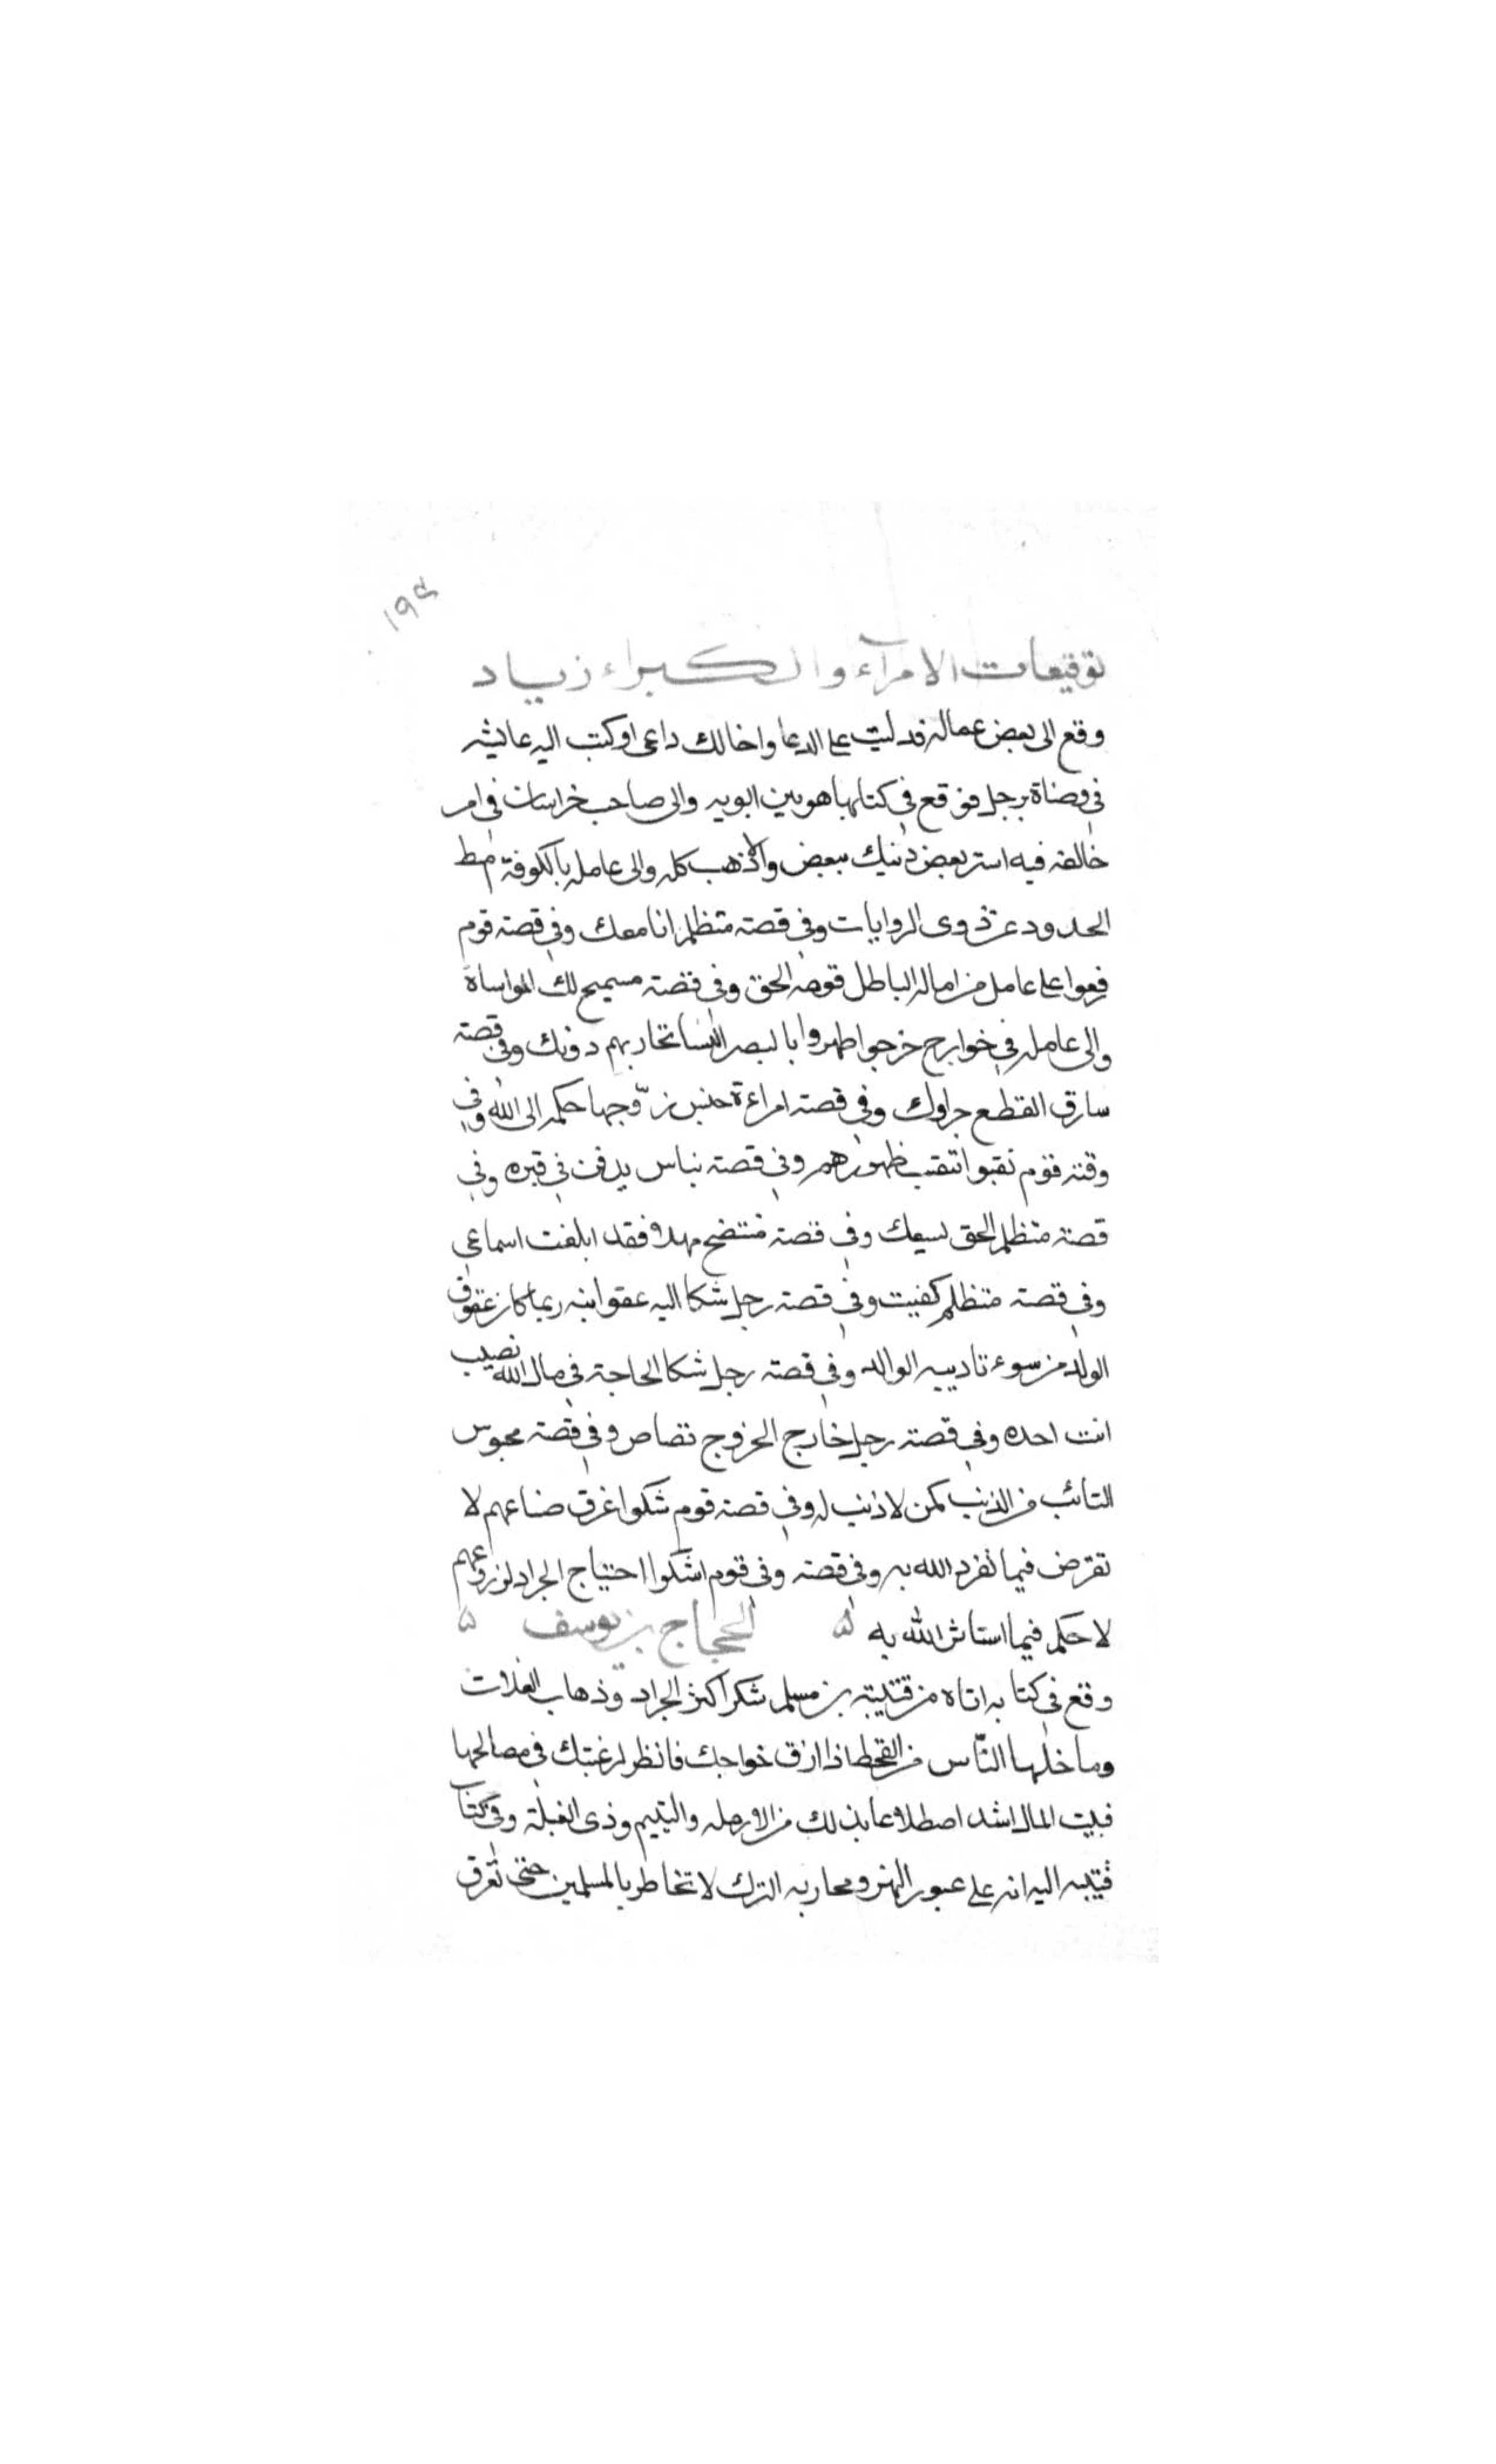 ١٩٤
توقيعات الامرآء والكبراء زياد
وقع الى بعض عماله قد ليت على الدعا واخالك داعى اوكتب اليه عايشه
فى وصاة برجل فوقع فى كتابها هو بين ابويه والى صاحب خراسان فى امر
خالفه فيه استر بعض دنيك ببعض والا ذهب كله والى عامله بالكوفة
الحدود عن ذوى الروايات وفى قصة متظلم انا معك وفى قصة قوم
رفعوا على عامل من اماله الباطل قومه الحق وفى قصة مسميح لك المواساة
والى عامله فى خوارج خرجوا بالبصر النسا تحاربهم دونك وفى قصة
سارق القطع جزاوك وفى قصة امراءة حبس زوّجها حكمه الى الله وفى
وقته قوم نقبوا تنقب ظهورهم وفى قصة نباس يدفن فى قبره وفى
قصة متظلم الحق يسعك وفى قصة متنضح مهلا فقد ابلغت اسماعى
وفى قصة متظلم كفيت وفى قصة رجل شكا اليه عقو ابنه ربما كان عقوق
الولد من سوء تاديبه الوالد وفى قصة رجل شكا الحاجة فى مال الله نصيب
انت احده وفى قصة رجل خارج الخروج قصاص وفى قصة محبوس
التائب من الذنب كمن لا ذنب له وفى قصة قوم شكوا غرق ضياعهم لا
تعرض فيما تفرد الله به وفى قصة وفى قوم اشكوا احتياج الجراد لزروعهم
لا حكم فيما استاثر الله به ه الحجاج بن يوسف ه
وقع فى كتابه اتاه من قتيبة بن مسلم شكر اكثر الجراد وذهاب الغلات
وما حل بها الناس من القحط اذا ازف خواجك فانظر لرغبتك فى مصالحها
فبيت المال اشد اصطلاعا بذلك من الارمله واليتيم وذى العيلة وفى كتاب
قتيبه اليه انه على عبور النهر ومحاربه الترك لا تخاطر بالمسلمين حتى تعرف